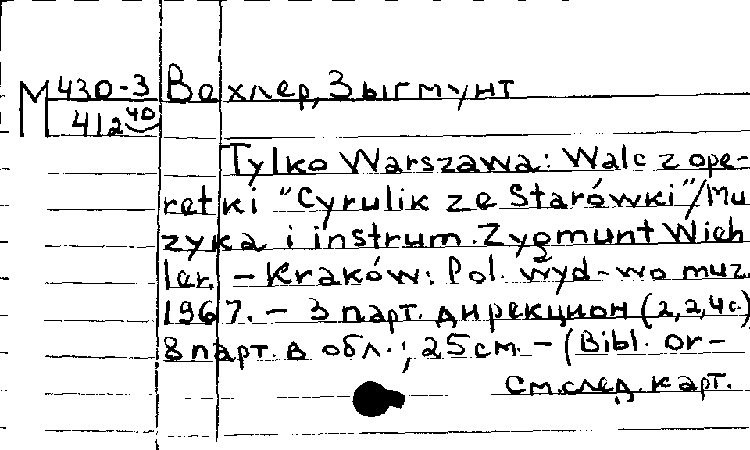 М 430-3 Вехлер, Зыгмунт
412 40
Tylko Warszawa: Walc z ope-
retki "Cyrulik ze Starówki"/Mu
zyka i instrum. Zygmunt Wieh
ler. - Kraków: Pol. wyd-wo muz.
1967. - 3 парт. дирекцион (2,2,4с.)
8 парт. в обл.; 25 см. - (Bibl. or-
см. след. карт.